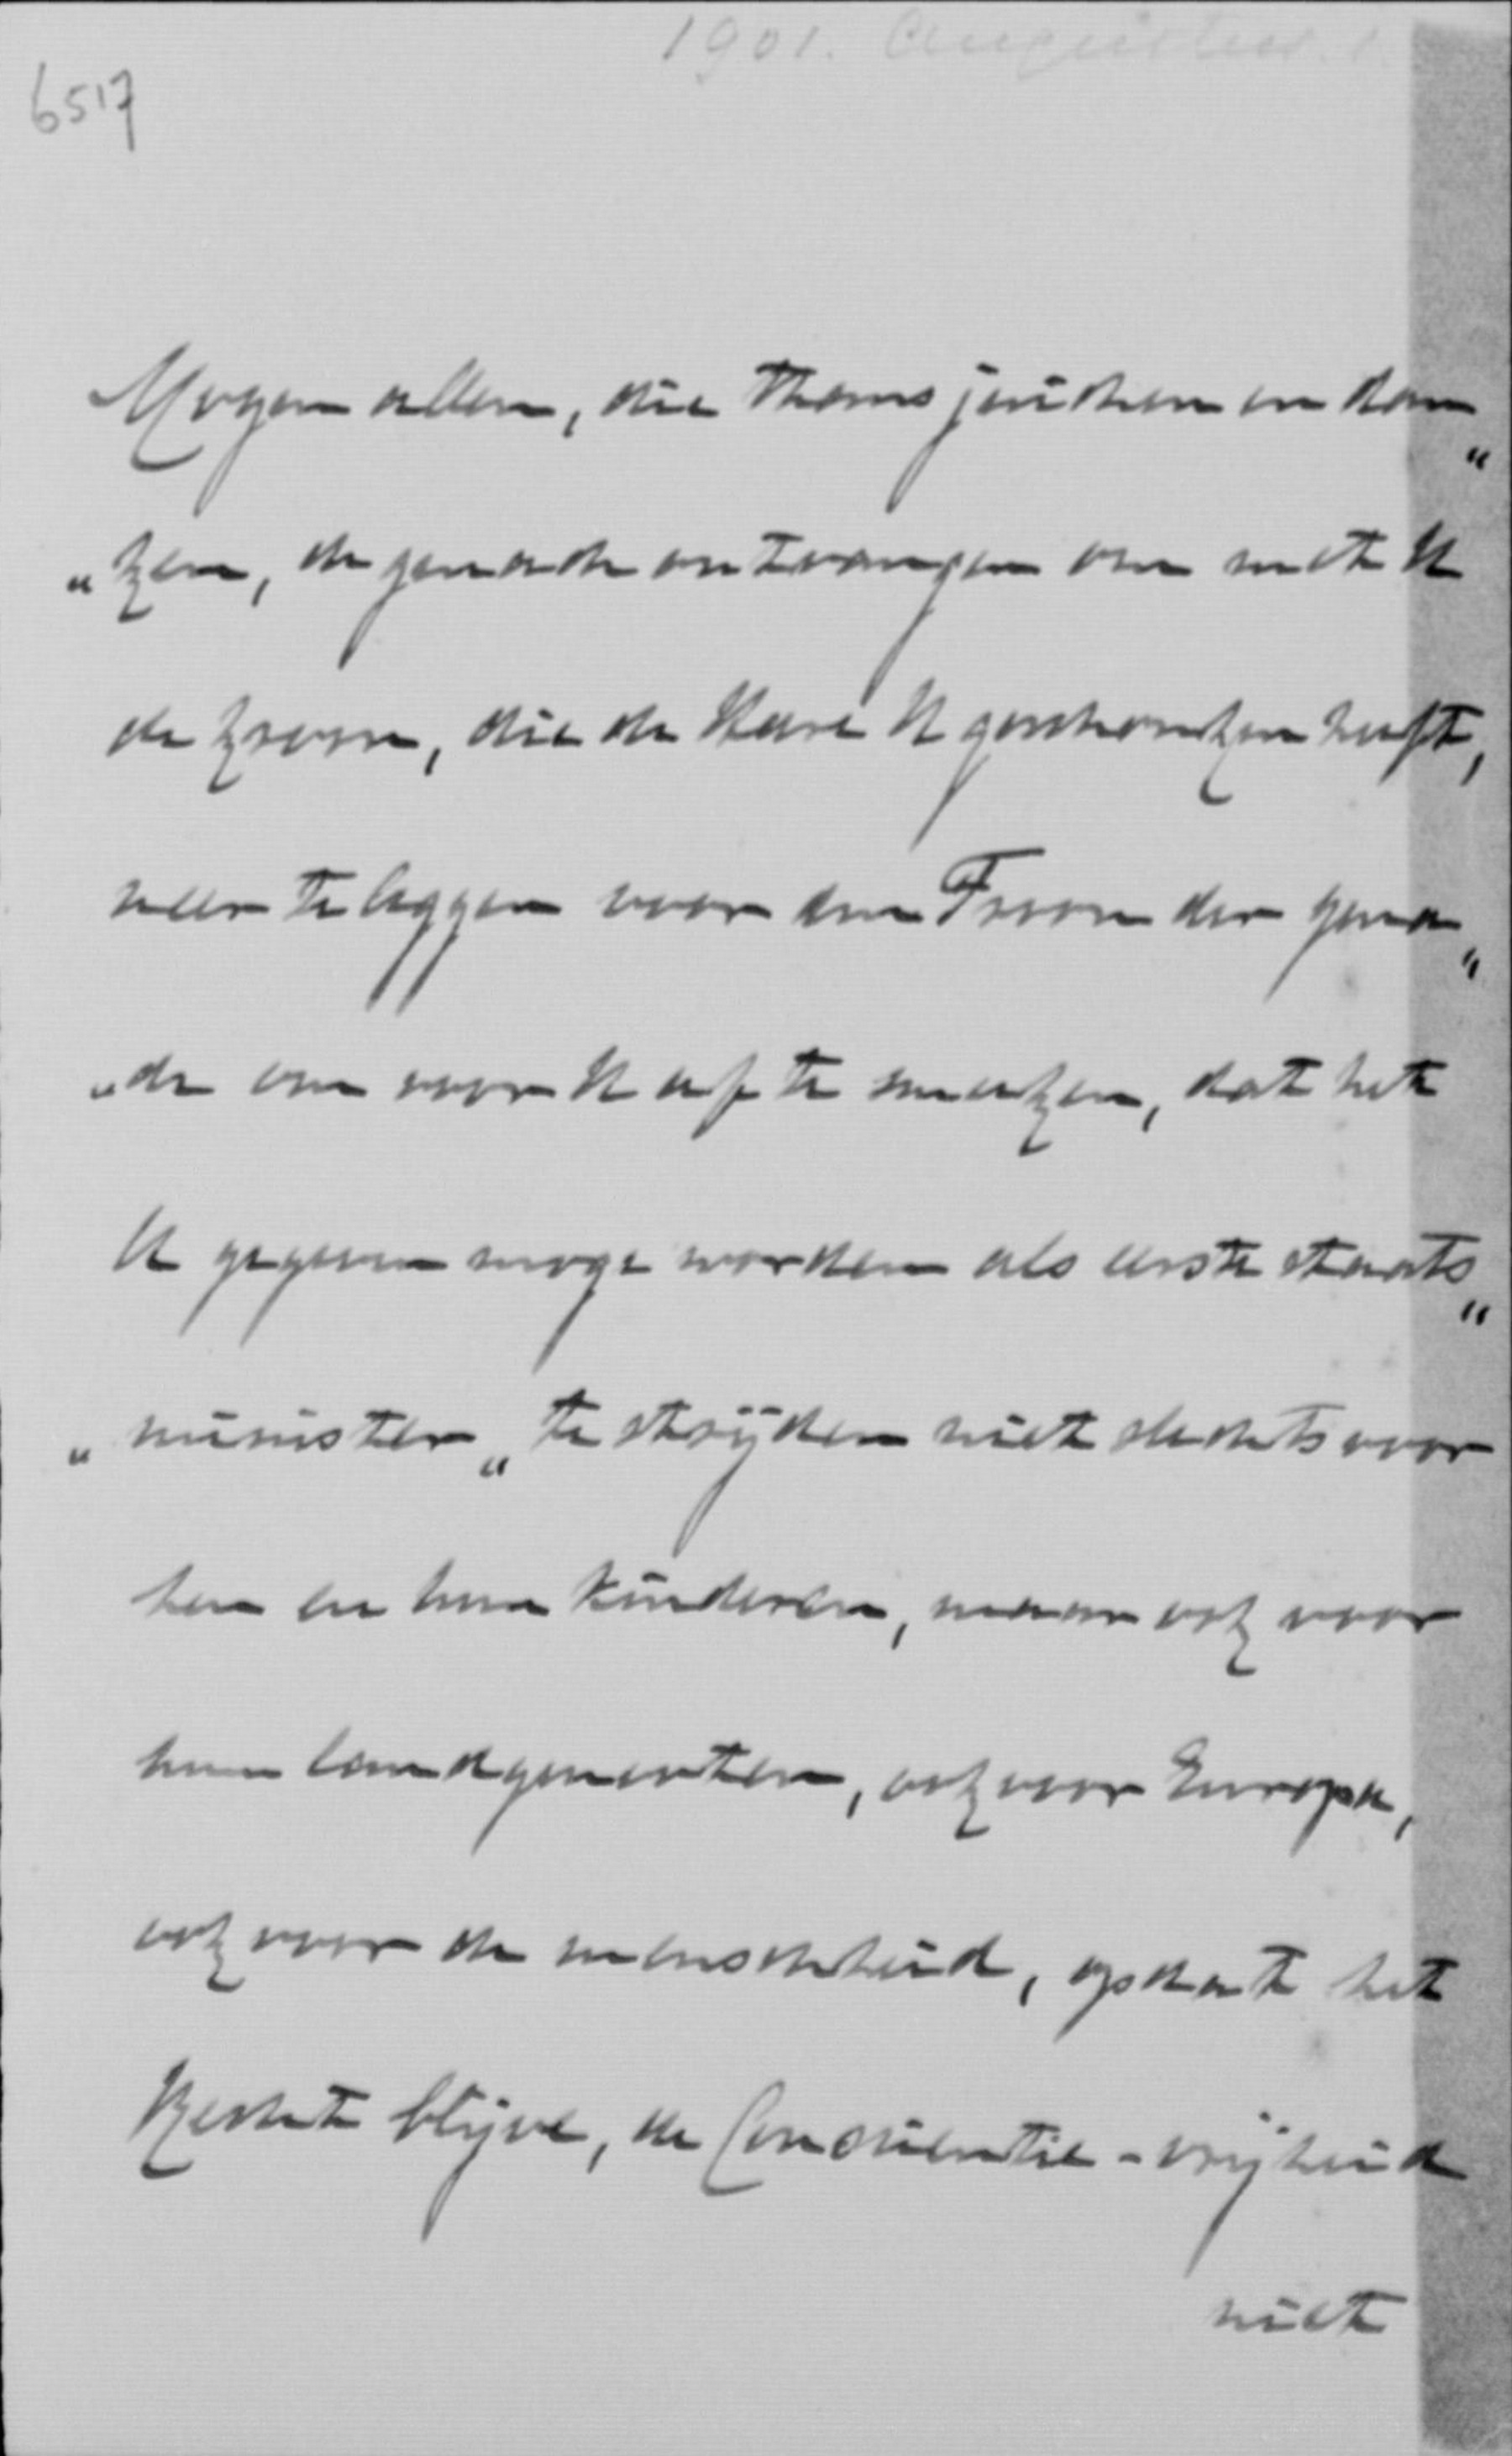 1901. Augustus. 1.
6517
Mogen allen, die thans juichen en dan„
„ken, de genade ontvangen om met U
de kroon, die de Heere U geschonken heeft,
neer te leggen voor den Troon der gena„
„de om voor U af te smeeken, dat het
U gegeven moge worden als eerste staats„
„minister„ te strijden niet slechts voor
hen en hun kinderen, maar ook voor
hun landgenooten, ook voor Europa,
ook voor de menschheid, opdat het
Recht blijve, de Consciëntie-vrijheid
niet